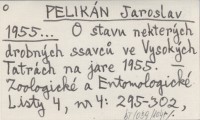 PELIKÁN Jaroslav
1955... O stavu nekterých
drobných ssavců ve Vysokých
Tatrách na jare 1955.
Zoologické a Entomologické
Listy 4, nr 4: 295-302,